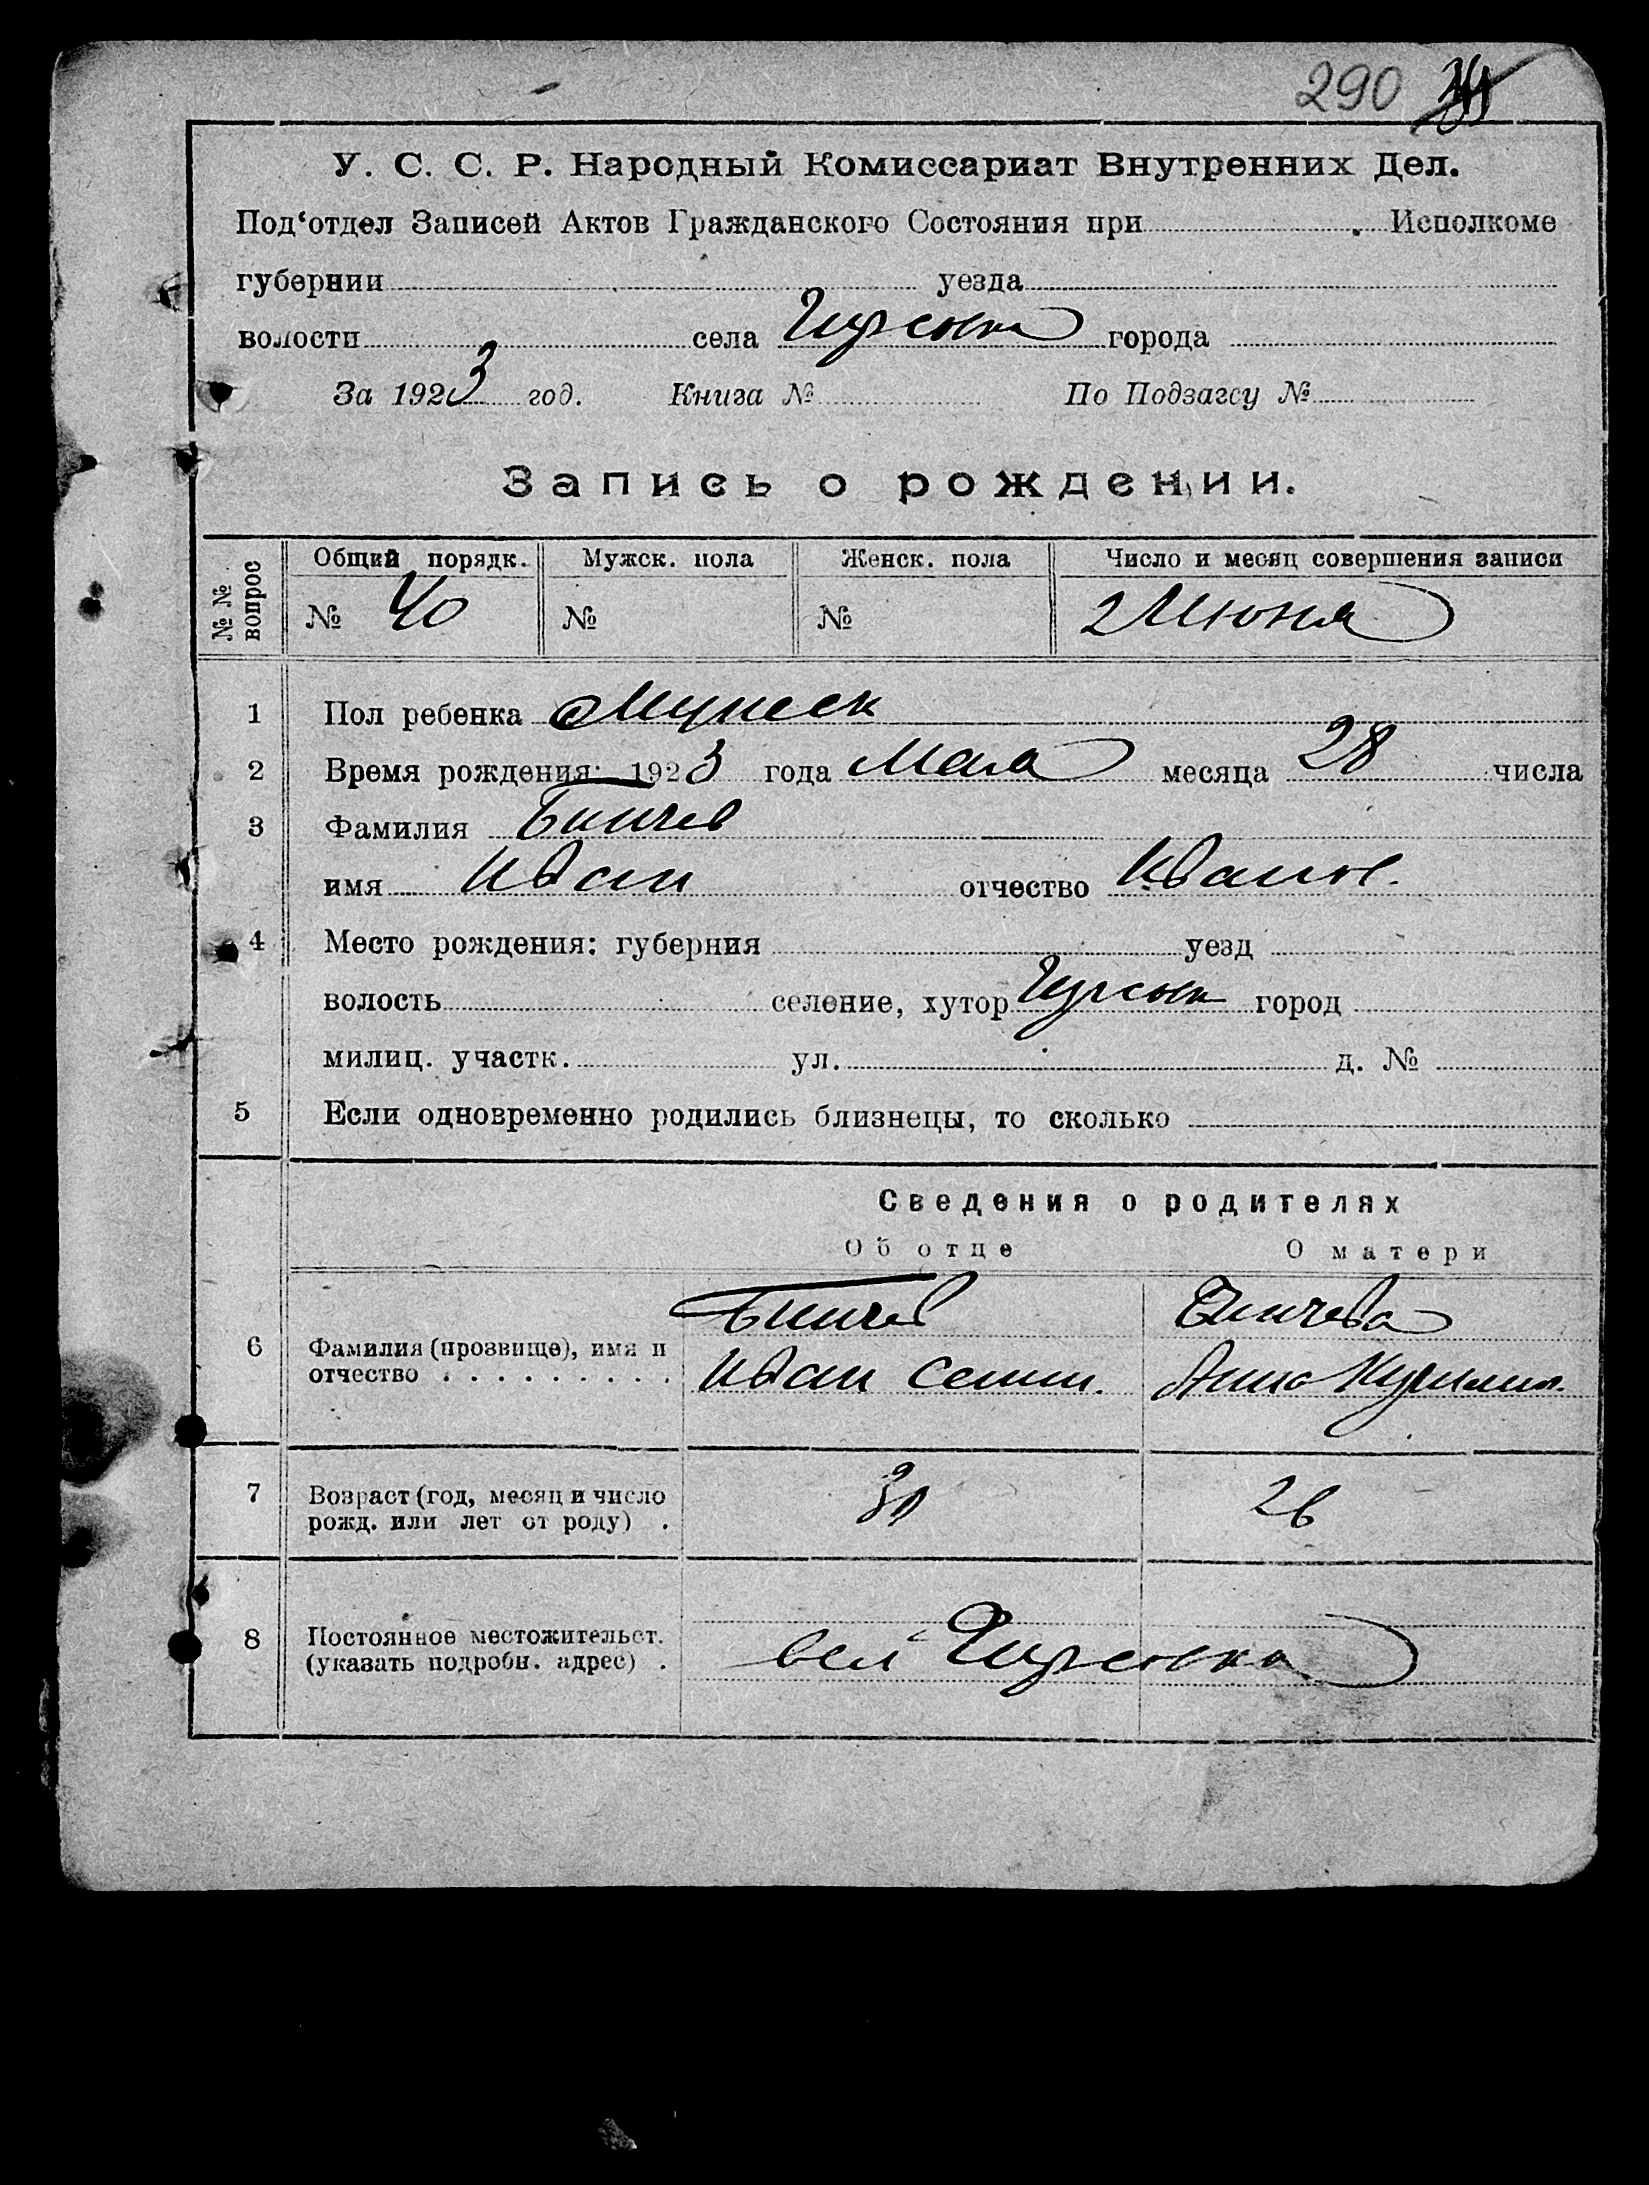 290
У. С. С. Р. Народный Комиссариат Внутренних Дел.
Под‘отдел Записей Актов Гражданского Состояния при Исполкоме
губернии уезда
волости села города
За 1923 год. Книга № По Подзагсу №
Запись о рождении.
№№ вопрос Общий порядк. Мужск. пола Женск. пола Число и месяц совершения записи
№ 40 № № 2 Июня
1 Пол ребенка Мужеск
2 Время рождения: 1923 года Мая месяца 28 числа
3 Фамилия Бинчев
имя Иван отчество Иванов.
4 Место рождения: губерния уезд
волость селение, хутор город
милиц. участк. ул. д. №
5 Если одновременно родились близнецы, то сколько
Сведения о родителях
Об отце О матери
Бинчев Бинчева
6 Фамилия (прозвище), имя и
отчество . . . . . . . . . Иван Семен. Анна
7 Возраст (год, месяц и число
рожд. или лет от роду) . 30 26
8 Постоянное местожительст.
(указать подробн. адрес) .